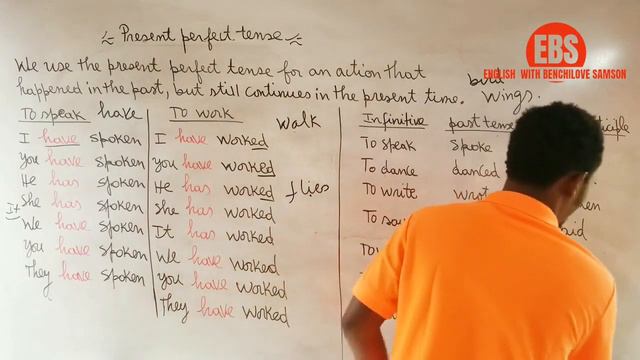 Present perfect tense
EBS
ENGLISH WITH BENCHILOVE SAMSON
We use the present perfect tense for an action that
happened in the past, but still continues in the present time.
wings.
To speak have
I have spoken
You have spoken
He has spoken
She has spoken
It
We have spoken
You have spoken
They have spoken
To work
walk
I have worked
You have worked
He has worked
flies
She has worked
It has worked
We have worked
You have worked
They have worked
Infinitive past tense
To speak spoke
To dance danced
To write